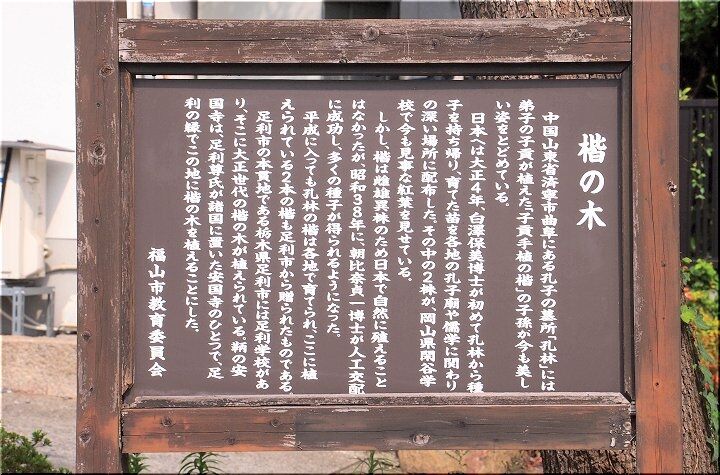 楷の木
中国山東省済寧市曲阜にある孔子の墓所「孔林」には
弟子の子貢が植えた「子貢手植の楷」の子孫が今も美し
い姿をとどめている。
日本へは大正４年、白澤保美博士が初めて孔林から種
子を持ち帰り、育てた苗を各地の孔子廟や儒学に関わり
の深い場所に配布した。その中の２株が、岡山県閑谷学
校で今も見事な紅葉を見せている。
しかし、楷は雌雄異株のため日本で自然に殖えること
はなかったが、昭和３８年に、朝比奈真一博士が人工交配
に成功し、多くの種子が得られるようになった。
平成に入っても孔林の楷は各地で育てられ、ここに植
えられている２本の楷も足利市から贈られたものである。
足利市の本貫地である栃木県足利市には足利学校があ
り、そこに大正世代の楷の木が植えられている。鞆の安
国寺は、足利尊氏が諸国に置いた安国寺のひとつで、足
利の縁でこの地に楷の木を植えることにした。
福山市教育委員会